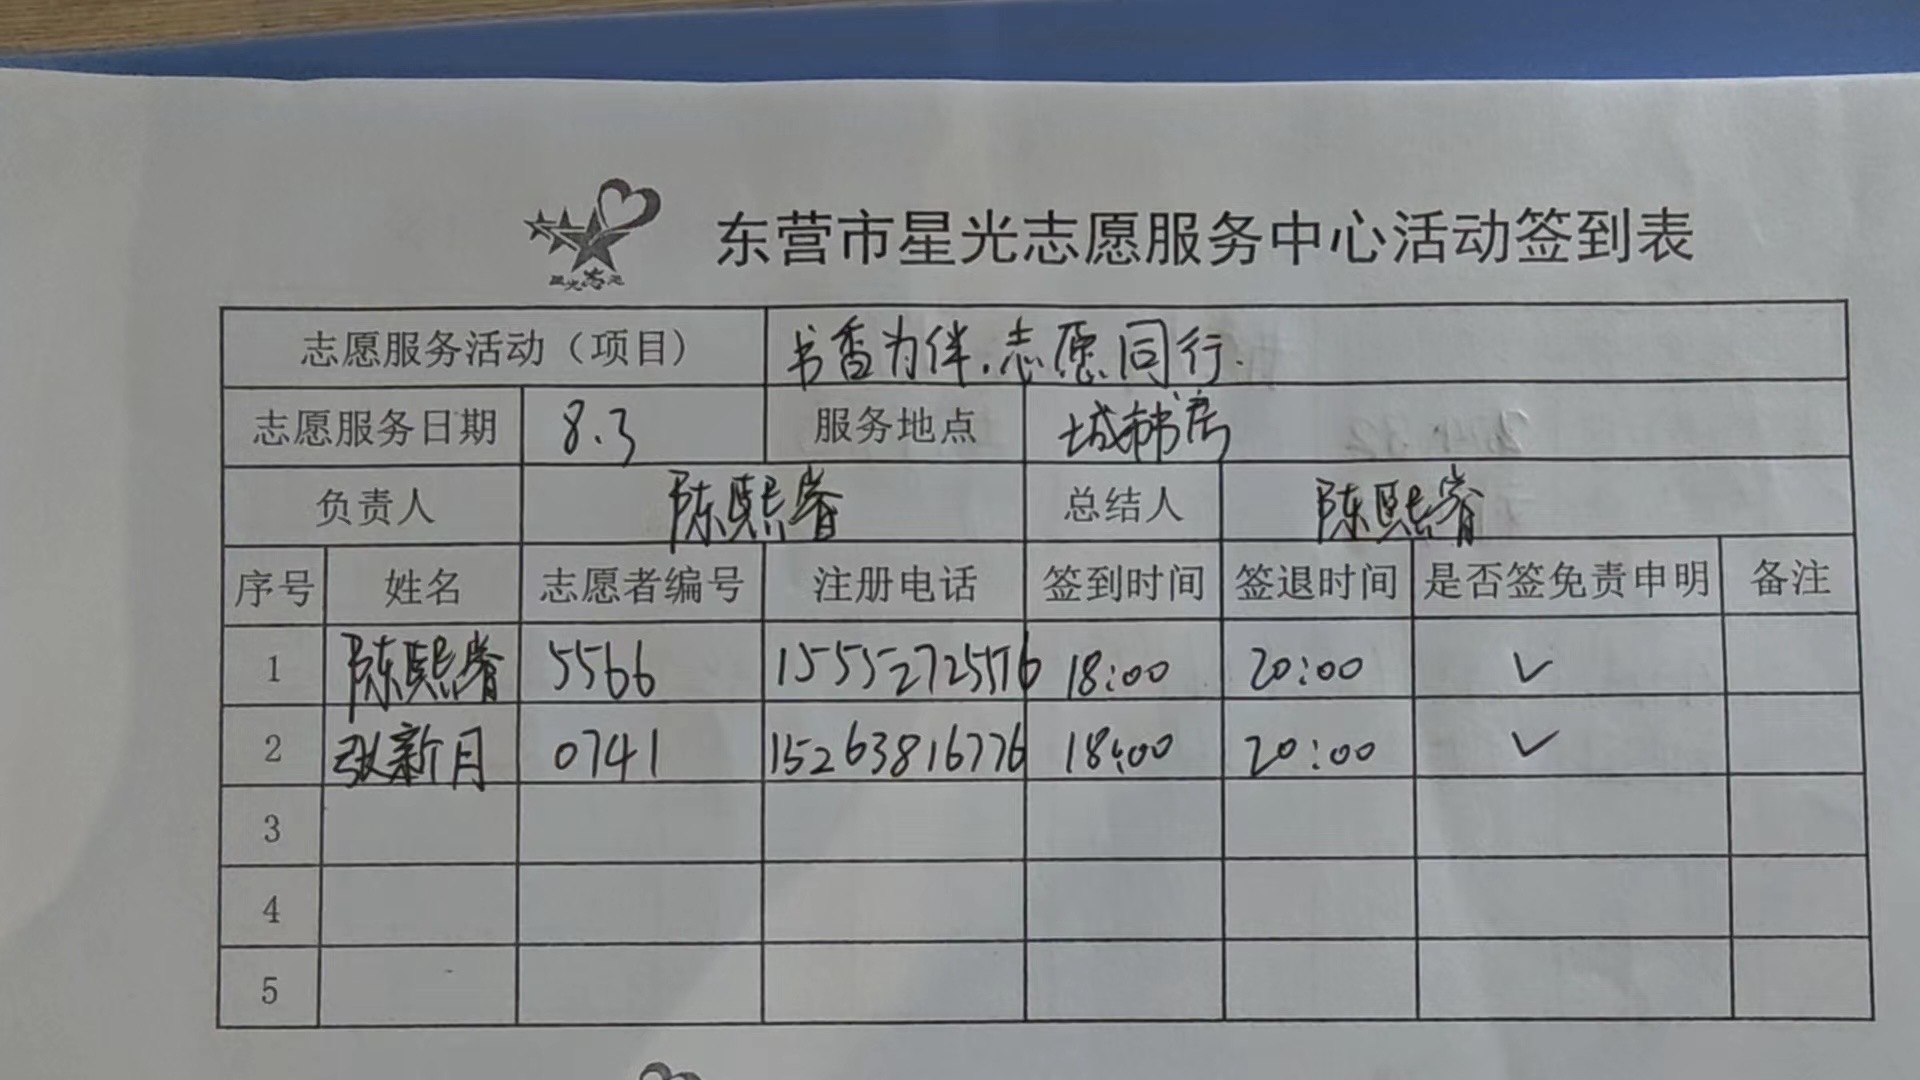 星光志愿
东营市星光志愿服务中心活动签到表
志愿服务活动（项目) 书香为伴.志愿同行.
志愿服务日期 8.3 服务地点 城市书房
负责人 陈熙睿 总结人 陈熙睿
序号 姓名 志愿者编号 注册电话 签到时间 签退时间 是否签免责申明 备注
1 陈熙睿 5566 15552725576 18:00 20:00 ✓
2 张新月 0741 15263816776 18:00 20:00 ✓
3
4
5